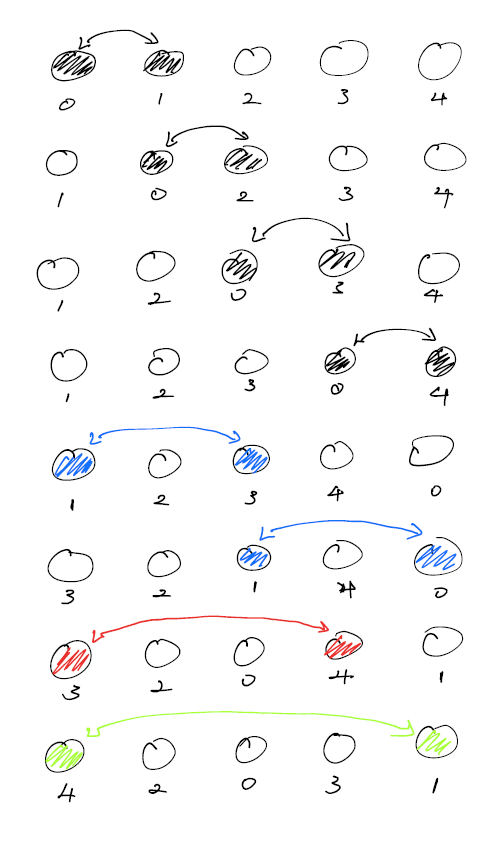 0 1 2 3 4
1 0 2 3 4
1 2 0 3 4
1 2 3 0 4
1 2 3 4 0
3 2 1 4 0
3 2 0 4 1
4 2 0 3 1